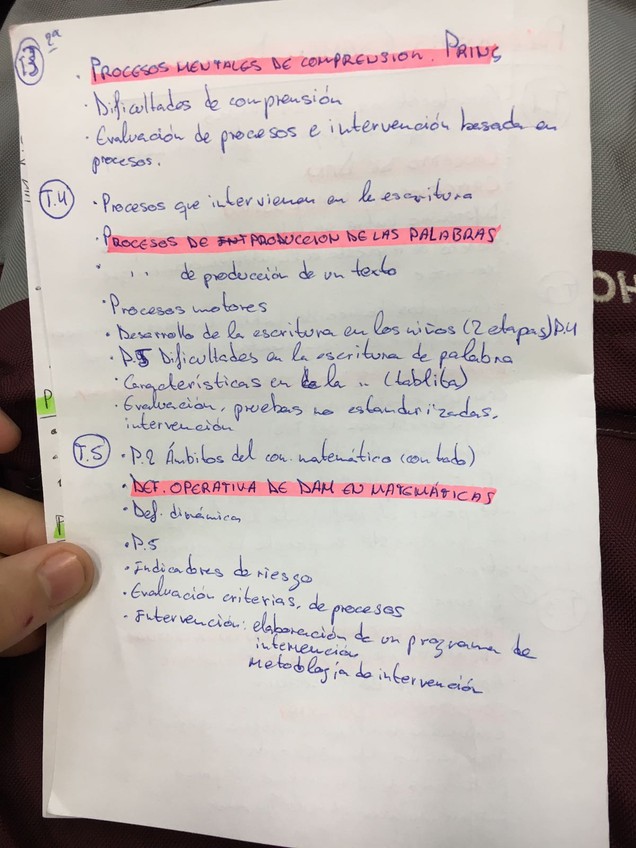 T.3 2ª
· PROCESOS MENTALES DE COMPRENSION. PRINC
· Dificultades de comprensión
· Evaluación de procesos e intervención basada en
procesos.
T.4
· Procesos que intervienen en la escritura
· PROCESOS DE PRODUCCION DE LAS PALABRAS
· , , de producción de un texto
· Procesos motores
· Desarrollo de la escritura en los niños (2 etapas) P.4
· P.5 Dificultades en la escritura de palabra
· Características en la " (tablita)
· Evaluación, pruebas no estandarizadas,
intervención
T.5
· P.2 Ámbitos del con. matemático (con todo)
· DEF. OPERATIVA DE DAM EN MATEMÁTICAS
· Def. dinámica
· P.5
· Indicadores de riesgo
· Evaluación criterias, de procesos
· Intervención: elaboración de un programa de
intervención
metodología de intervención
P
F
HO